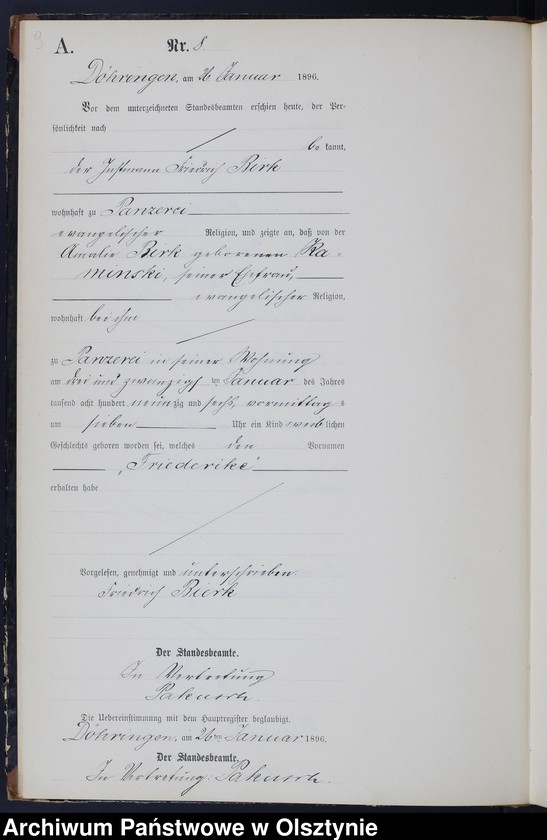 A. Nr. 8
Döhringen, am 26 Januar 1896.
Vor dem unterzeichneten Standesbeamten erschien heute, der Per-
sönlichkeit nach
be kannt,
der Instmann Friedrich Berk
wohnhaft zu Panzerei
evangelischer Religion, und zeigte an, daß von der
Amalie Berk geborenen Ka-
minski, seiner Ehefrau,
evangelischer Religion,
wohnhaft bei ihm
zu Panzerei in seiner Wohnung
am drei und zwanzigsten Januar des Jahres
tausend acht hundert neunzig und sechs, vormittags
um sieben Uhr ein Kind weiblichen
Geschlechts geboren worden sei, welches den Vornamen
„Friederike“
erhalten habe
Vorgelesen, genehmigt und unterschrieben.
Friedrich Bierk
Der Standesbeamte.
In Vertretung
Die Uebereinstimmung mit dem Hauptregister beglaubigt.
Döhringen, am 26ten Januar 1896.
Der Standesbeamte.
In Vertretung:
Archiwum Państwowe w Olsztynie